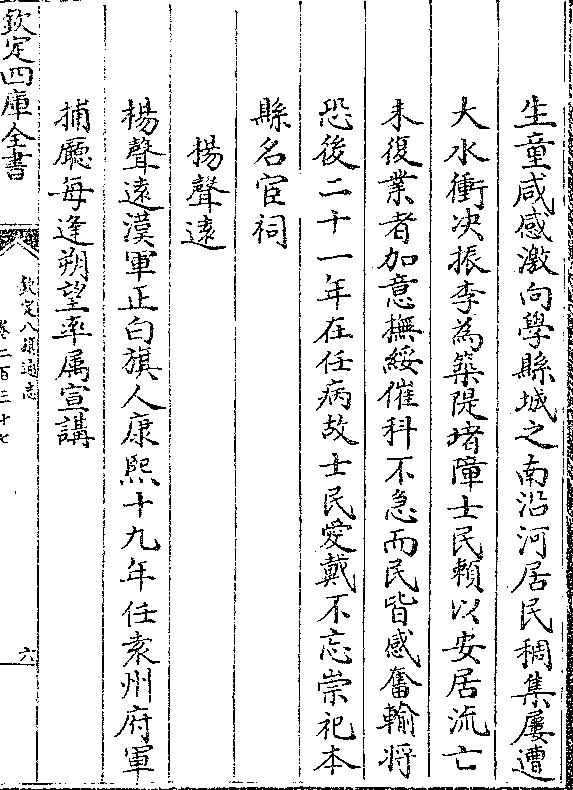 生童咸感激向學縣城之南沿河居民稠集屢遭
大水衝决振李為築隄堵障士民賴以安居流亡
未復業者加意撫綏催科不急而民皆感奮輸将
恐後二十一年在任病故士民愛戴不忘崇祀本
縣名宦祠
楊聲遠
楊聲遠漢軍正白旗人康熙十九年任袁州府軍
捕廳每逢朔望率属宣講
欽定四庫全書
欽定八旗通志
卷二百三十七
六